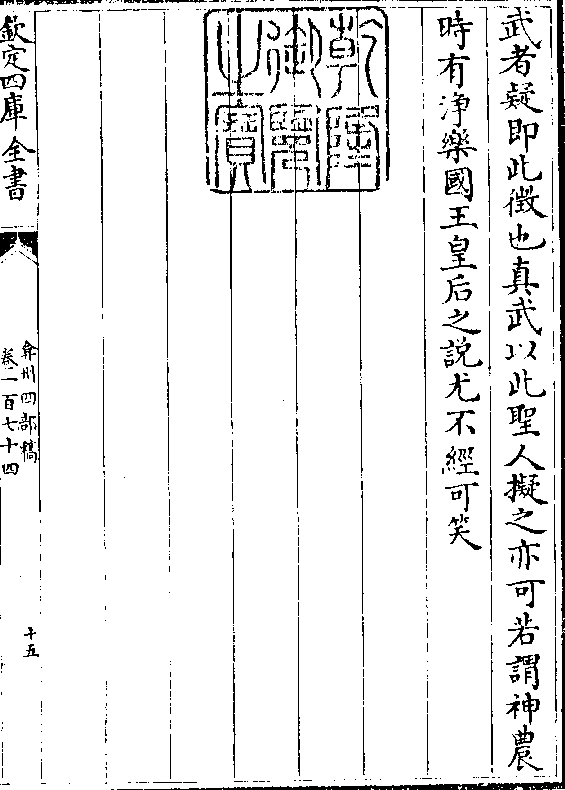 武者疑即此徵也真武以此聖人擬之亦可若謂神農
時有淨樂國王皇后之說尤不經可笑
乾隆御覽之寶
欽定四庫全書
弇州四部稿
卷一百七十四
十五